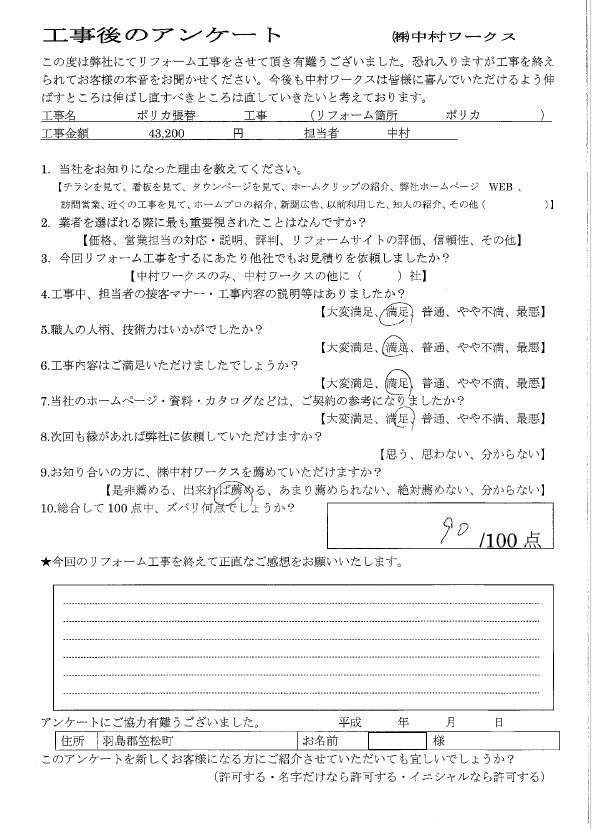 工事後のアンケート ㈱中村ワークス
この度は弊社にてリフォーム工事をさせて頂き有難うございました。恐れ入りますが工事を終え
られてお客様の本音をお聞かせください。今後も中村ワークスは皆様に喜んでいただけるよう伸
ばすところは伸ばし直すべきところは直していきたいと考えております。
工事名 ポリカ張替 工事 （リフォーム箇所 ポリカ ）
工事金額 43,200 円 担当者 中村
1. 当社をお知りになった理由を教えてください。
【チラシを見て、看板を見て、タウンページを見て、ホームクリップの紹介、弊社ホームページ WEB 、
訪問営業、近くの工事を見て、ホームプロの紹介、新聞広告、以前利用した、知人の紹介、その他（ ）】
2. 業者を選ばれる際に最も重要視されたことはなんですか？
【価格、営業担当の対応・説明、評判、リフォームサイトの評価、信頼性、その他】
3. 今回リフォーム工事をするにあたり他社でもお見積りを依頼しましたか？
【中村ワークスのみ、中村ワークスの他に（ ）社】
4.工事中、担当者の接客マナー・工事内容の説明等はありましたか？
【大変満足、満足、普通、やや不満、最悪】
5.職人の人柄、技術力はいかがでしたか？
【大変満足、満足、普通、やや不満、最悪】
6.工事内容はご満足いただけましたでしょうか？
【大変満足、満足、普通、やや不満、最悪】
7.当社のホームページ・資料・カタログなどは、ご契約の参考になりましたか？
【大変満足、満足、普通、やや不満、最悪】
8.次回も縁があれば弊社に依頼していただけますか？
【思う、思わない、分からない】
9.お知り合いの方に、㈱中村ワークスを薦めていただけますか？
【是非薦める、出来れば薦める、あまり薦められない、絶対薦めない、分からない】
10.総合して100点中、ズバリ何点でしょうか？
90 /100 点
★今回のリフォーム工事を終えて正直なご感想をお願いいたします。
アンケートにご協力有難うございました。 平成 年 月 日
住所 羽島郡笠松町 お名前 様
このアンケートを新しくお客様になる方にご紹介させていただいても宜しいでしょうか？
（許可する・名字だけなら許可する・イニシャルなら許可する）